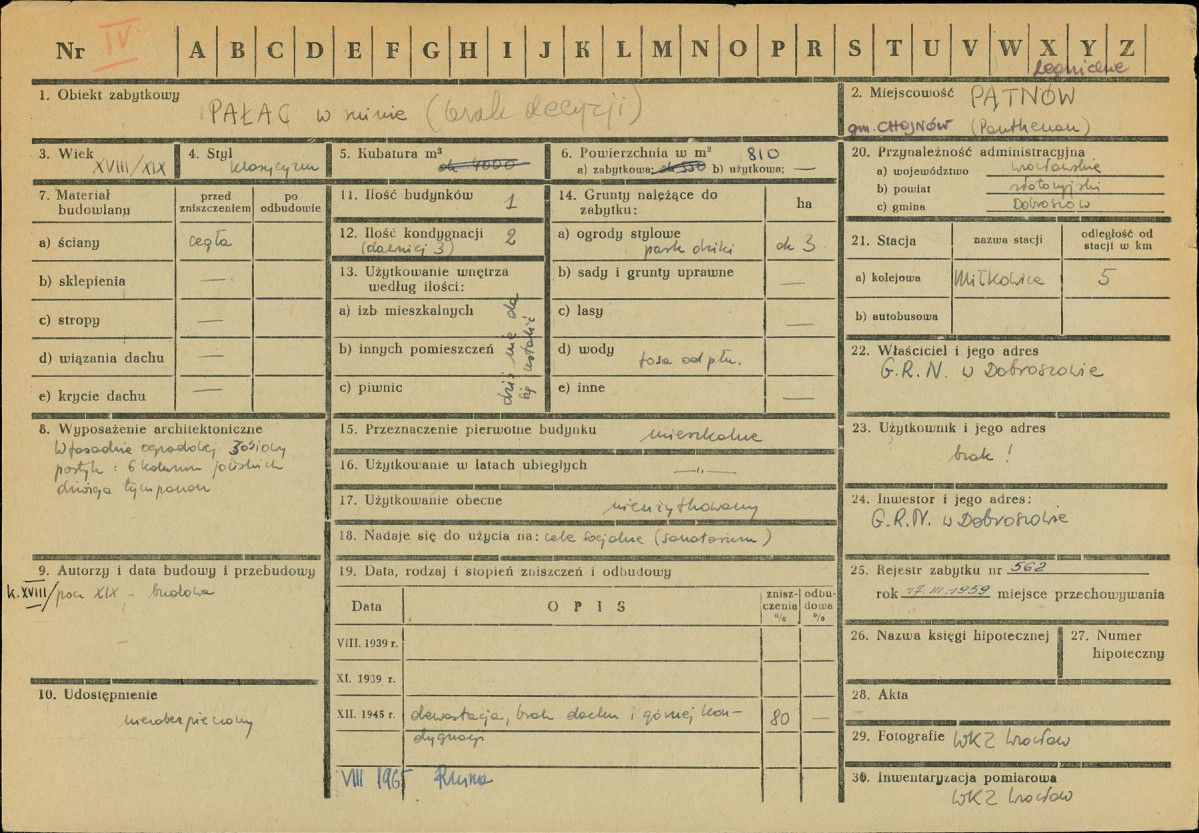 Nr IV A B C D E F G H I J K L M N O P R S T U V W X Y Z
legnickie
1. Obiekt zabytkowy
PAŁAC w ruinie (brak decyzji)
2. Miejscowość PĄTNÓW
gm. CHOJNÓW (Panthenau)
3. Wiek
XVIII/XIX
4. Styl
klasycyzm
5. Kubatura m³
ok 4000
6. Powierzchnia w m² 810
a) zabytkowa: ok 550 b) użytkowa; —
7. Materiał budowlany
przed zniszczeniem
po odbudowie
a) ściany cegła
b) sklepienia —
c) stropy —
d) wiązania dachu —
e) krycie dachu —
8. Wyposażenie architektoniczne
W fasadzie ogrodowej 3 osiowy
portyk: 6 kolumn jońskich
dźwiga tympanon
9. Autorzy i data budowy i przebudowy
k. XVIII/pocz XIX – budowa
10. Udostępnienie
niezabezpieczony
11. Ilość budynków 1
12. Ilość kondygnacji 2
(dawniej 3)
13. Użytkowanie wnętrza
według ilości:
a) izb mieszkalnych
b) innych pomieszczeń
c) piwnic
dziś nie da
się ustalić
14. Grunty należące do
zabytku:
ha
a) ogrody stylowe
park dziki ok 3
b) sady i grunty uprawne —
c) lasy —
d) wody fosa od płn.
e) inne —
15. Przeznaczenie pierwotne budynku mieszkalne
16. Użytkowanie w latach ubiegłych —„—
17. Użytkowanie obecne nieużytkowany
18. Nadaje się do użycia na: cele socjalne (sanatorium)
19. Data, rodzaj i stopień zniszczeń i odbudowy
Data
O P I S
znisz-
czenia
%
odbu-
dowa
%
VIII. 1939 r.
XI. 1939 r.
XII. 1945 r. dewastacja, brak dachu i górnej kon-
dygnacji
80 —
VIII 1965 Ruina
20. Przynależność administracyjna
a) województwo wrocławskie
b) powiat złotoryjski
c) gmina Dobroszów
21. Stacja
nazwa stacji
odległość od
stacji w km
a) kolejowa Miłkowice 5
b) autobusowa
22. Właściciel i jego adres
G.R.N. w Dobroszowie
23. Użytkownik i jego adres
brak!
24. Inwestor i jego adres:
G.R.N. w Dobroszowie
25. Rejestr zabytku nr 562
rok 17.III.1959 miejsce przechowywania
26. Nazwa księgi hipotecznej
27. Numer
hipoteczny
28. Akta
29. Fotografie WKZ Wrocław
30. Inwentaryzacja pomiarowa
WKZ Wrocław